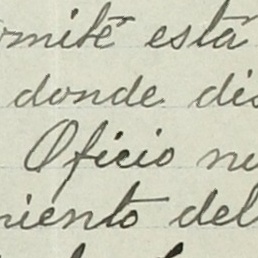 omité está
donde dis
Oficio nu
miento del